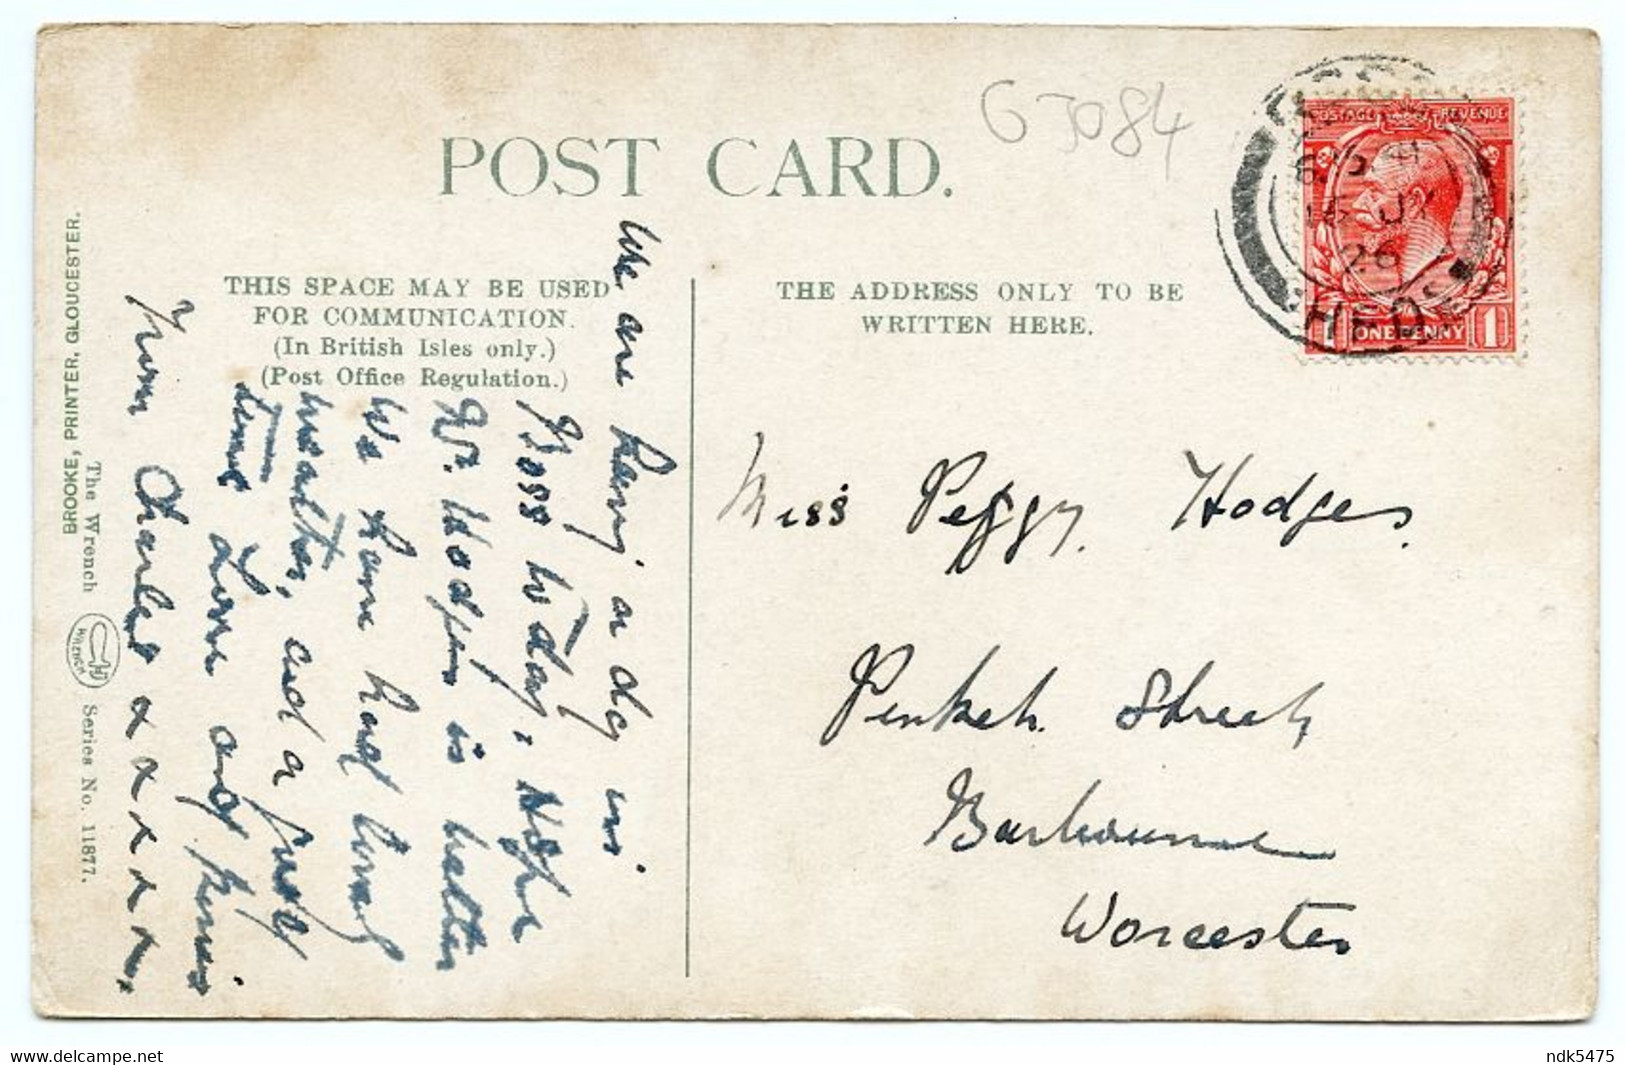 POST CARD.
G J084
POSTAGE REVENUE
26
1 ONE PENNY 1
THIS SPACE MAY BE USED
FOR COMMUNICATION.
(In British Isles only.)
(Post Office Regulation.)
THE ADDRESS ONLY TO BE
WRITTEN HERE.
We are having a day in
Ross today, Hope
Mr. Hodges is better
We have had lovely
weather, and a good
time Love and kisses
from Charles x x x x x x x
Miss Peggy Hodges.
Street
Barbourne
Worcester
BROOKE, PRINTER, GLOUCESTER.
The Wrench
WRENCH
Series No. 11877.
delcampe.net
ndk5475